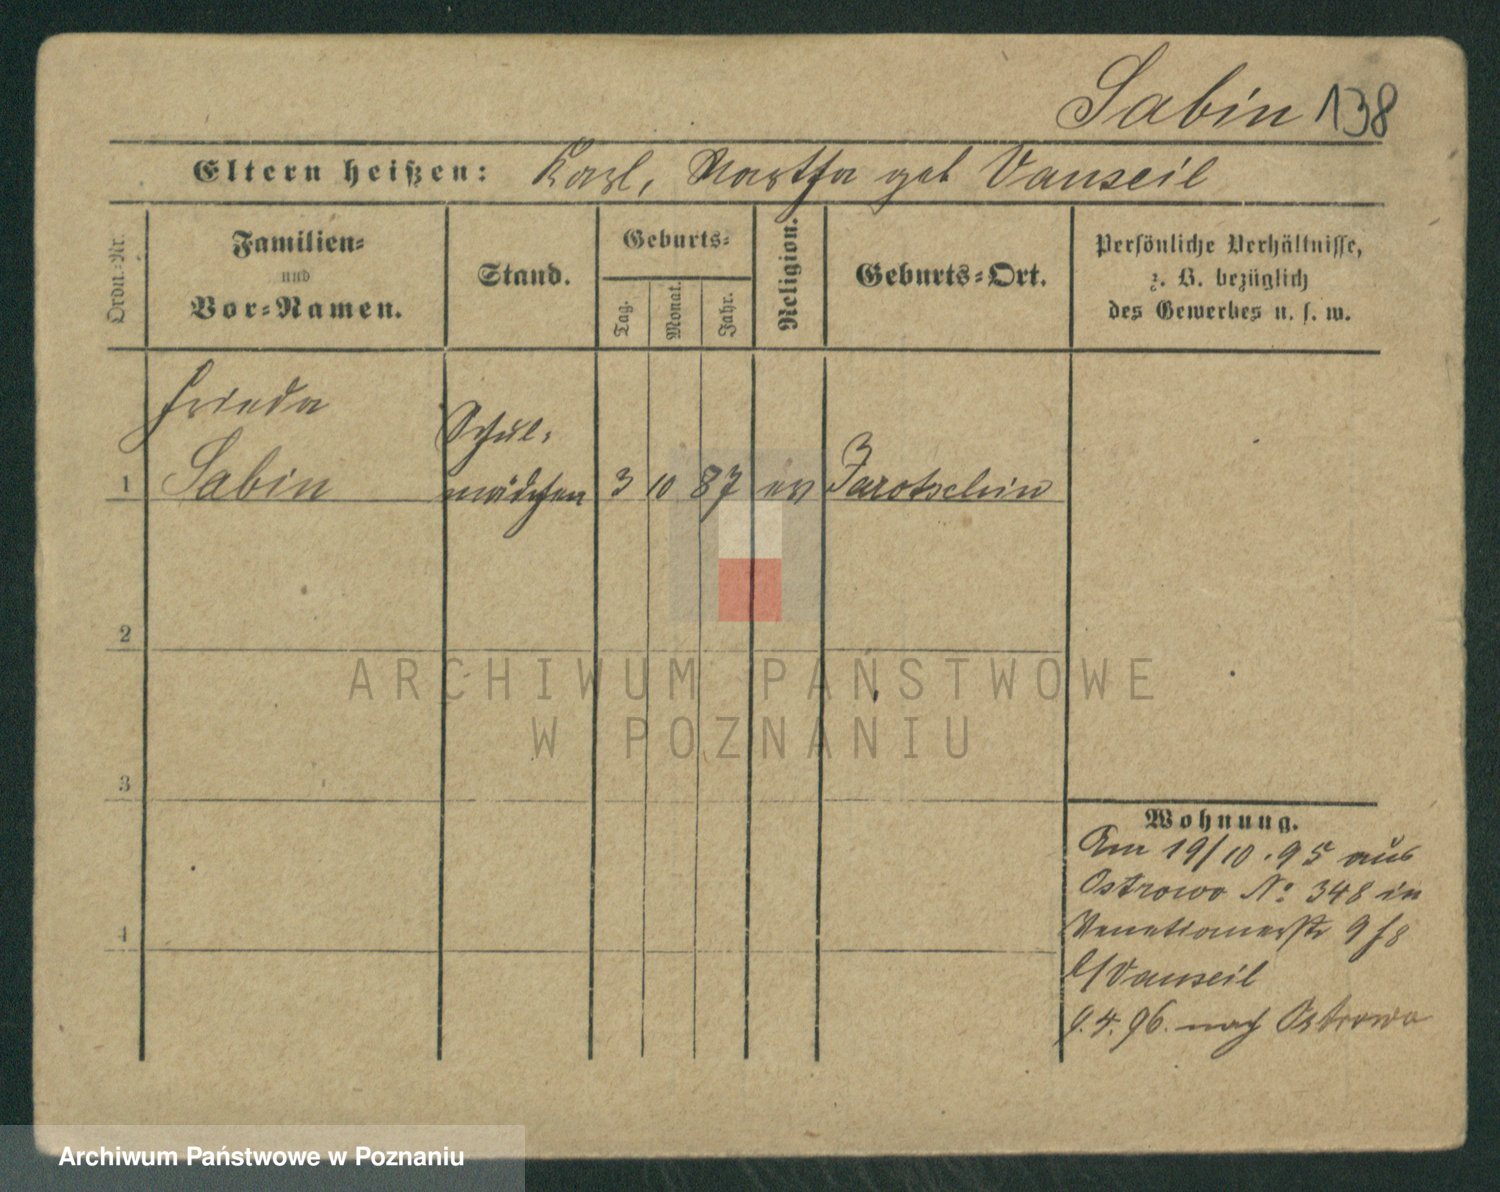 Sabin 138
Eltern heißen: Karl, Martha geb Vanseil
Ordn.-Nr.
Familien-
und
Vor-Namen.
Stand.
Geburts-
Tag.
Monat.
Jahr.
Religion.
Geburts-Ort.
Persönliche Verhältnisse,
z. B. bezüglich
des Gewerbes u. s. w.
Frieda
Sabin
Schul-
mädchen
1 3 10 87 ev Jarotschin
2
ARCHIWUM PAŃSTWOWE
W POZNANIU
3
Wohnung.
Am 19/10.95 aus
Ostrowo No 348 in
Venetianerstr 9 f8
b/Vanseil
4
9.4.96. nach Ostrowo
Archiwum Państwowe w Poznaniu